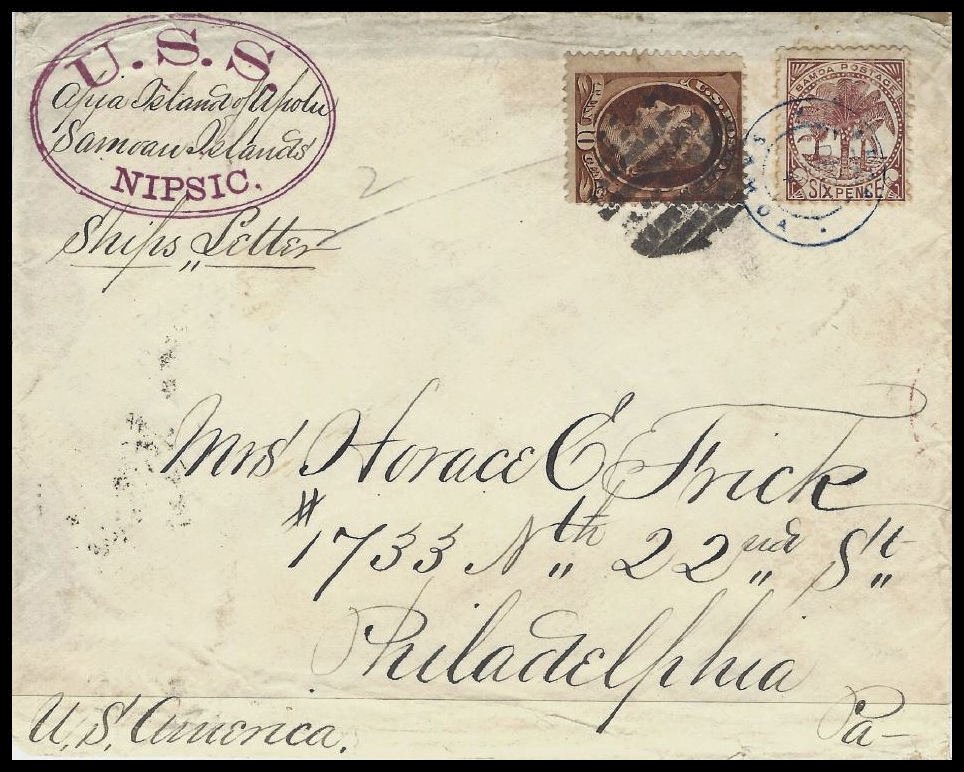 U.S.S
Apia Island of Apolu
Samoan Islands
NIPSIC.
Ships „ Letter
2
10
U.S.
SAMOA POSTAGE
SIX PENCE
SAMOA
Mrs Horace E Frick
# 1733 Nth„ 22nd„ St„
Philadelphia
Pa-
U.S. America.